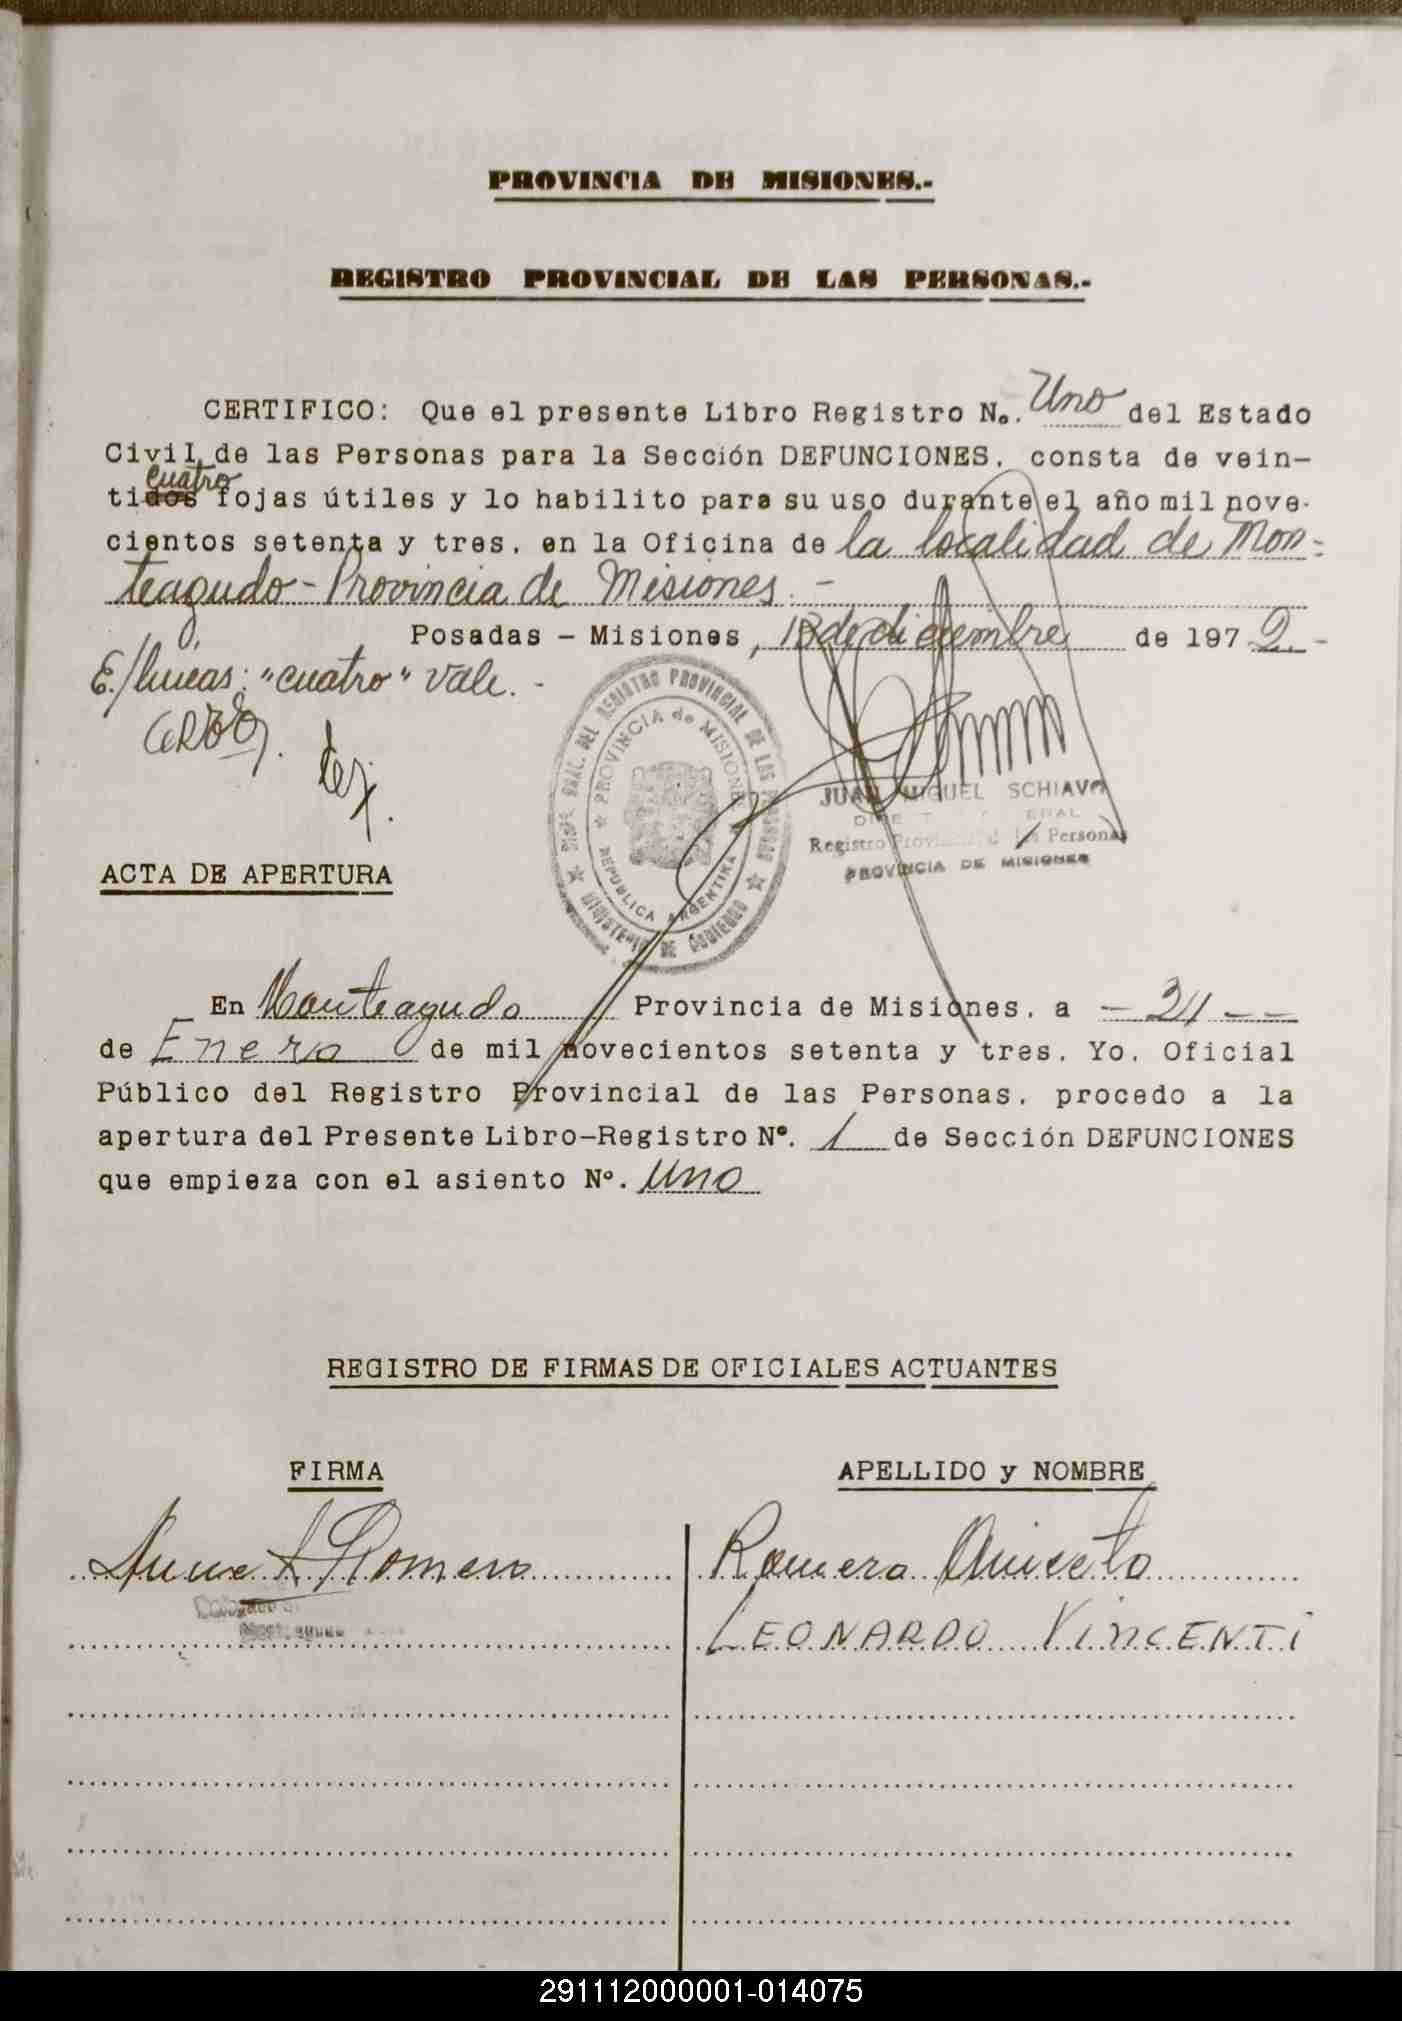 PROVINCIA DE MISIONES.-
REGISTRO PROVINCIAL DE LAS PERSONAS.-
CERTIFICO: Que el presente Libro Registro No. Uno del Estado
Civil de las Personas para la Sección DEFUNCIONES, consta de vein-
cuatro
tidos fojas útiles y lo habilito para su uso durante el año mil nove-
cientos setenta y tres, en la Oficina de la localidad de Mon=
teagudo - Provincia de Misiones. -
Posadas - Misiones, 18 de diciembre de 1972.-
E/lineas: "cuatro" vale.-
JUAN MIGUEL SCHIAVO
Registro Provincial de las Personas
PROVINCIA DE MISIONES
DIRE. GRAL. DEL REGISTRO PROVINCIAL DE LAS PERSONAS
PROVINCIA de MISIONES
REPUBLICA ARGENTINA
MINISTERIO DE GOBIERNO
ACTA DE APERTURA
En Monteagudo Provincia de Misiones, a - 24 - -
de Enero de mil novecientos setenta y tres. Yo, Oficial
Público del Registro Provincial de las Personas, procedo a la
apertura del Presente Libro-Registro Nº. 1 de Sección DEFUNCIONES
que empieza con el asiento Nº. Uno
REGISTRO DE FIRMAS DE OFICIALES ACTUANTES
FIRMA APELLIDO y NOMBRE
Romero Romero Aniceto
LEONARDO VINCENTI
291112000001-014075